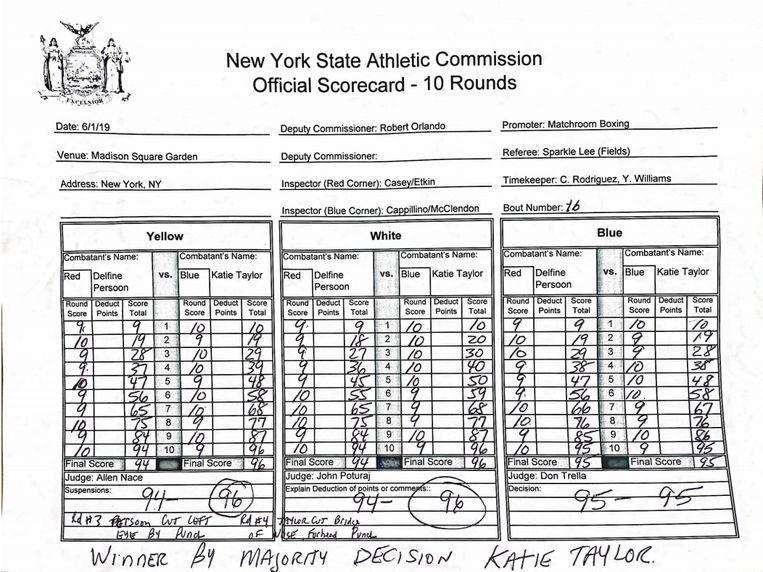 EXCELSIOR
New York State Athletic Commission
Official Scorecard - 10 Rounds
Date: 6/1/19 Deputy Commissioner: Robert Orlando Promoter: Matchroom Boxing
Venue: Madison Square Garden Deputy Commissioner: Referee: Sparkle Lee (Fields)
Address: New York, NY Inspector (Red Corner): Casey/Etkin Timekeeper: C. Rodriguez, Y. Williams
Inspector (Blue Corner): Cappillino/McClendon Bout Number: 16
Yellow White Blue
Combatant's Name: Combatant's Name: Combatant's Name: Combatant's Name: Combatant's Name: Combatant's Name:
Red Delfine vs. Blue Katie Taylor Red Delfine vs. Blue Katie Taylor Red Delfine vs. Blue Katie Taylor
Persoon Persoon Persoon
Round Deduct Score Round Deduct Score Round Deduct Score Round Deduct Score Round Deduct Score Round Deduct Score
Score Points Total Score Points Total Score Points Total Score Points Total Score Points Total Score Points Total
9 9 1 10 10 9 9 1 10 10 9 9 1 10 10
10 19 2 9 19 9 18 2 10 20 10 19 2 9 19
9 28 3 10 29 9 27 3 10 30 10 29 3 9 28
9 37 4 10 39 9 36 4 10 40 9 38 4 10 38
10 47 5 9 48 9 45 5 10 50 9 47 5 10 48
9 56 6 10 58 10 55 6 9 59 9 56 6 10 58
9 65 7 10 68 10 65 7 9 68 10 66 7 9 67
10 75 8 9 77 10 75 8 9 77 10 76 8 9 76
9 84 9 10 87 9 84 9 10 87 9 85 9 10 86
10 94 10 9 96 10 94 10 9 96 10 95 10 9 95
Final Score 94 Final Score 96 Final Score 94 Final Score 96 Final Score 95 Final Score 95
Judge: Allen Nace Judge: John Poturaj Judge: Don Trella
Suspensions: Explain Deduction of points or comments:: Decision:
94 - 96 94 - 96 95 - 95
Rd #3 PERSOON CUT LEFT Rd #4 TAYLOR CUT Bridge
EYE By Punch OF NOSE Forhead Punch
WINNER BY MAJORITY DECISION KATIE TAYLOR.